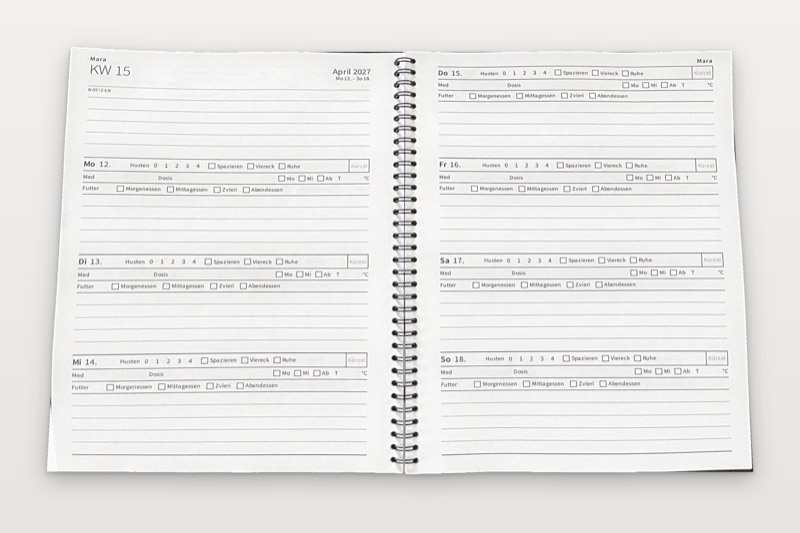 Mara
KW 15
April 2027
Mo 12. - So 18.
NOTIZEN
Mo 12. Husten 0 1 2 3 4 Spazieren Viereck Ruhe Kürzel
Med Dosis Mo Mi Ab T °C
Futter Morgenessen Mittagessen Zvieri Abendessen
Di 13. Husten 0 1 2 3 4 Spazieren Viereck Ruhe Kürzel
Med Dosis Mo Mi Ab T °C
Futter Morgenessen Mittagessen Zvieri Abendessen
Mi 14. Husten 0 1 2 3 4 Spazieren Viereck Ruhe Kürzel
Med Dosis Mo Mi Ab T °C
Futter Morgenessen Mittagessen Zvieri Abendessen
Mara
Do 15. Husten 0 1 2 3 4 Spazieren Viereck Ruhe Kürzel
Med Dosis Mo Mi Ab T °C
Futter Morgenessen Mittagessen Zvieri Abendessen
Fr 16. Husten 0 1 2 3 4 Spazieren Viereck Ruhe Kürzel
Med Dosis Mo Mi Ab T °C
Futter Morgenessen Mittagessen Zvieri Abendessen
Sa 17. Husten 0 1 2 3 4 Spazieren Viereck Ruhe Kürzel
Med Dosis Mo Mi Ab T °C
Futter Morgenessen Mittagessen Zvieri Abendessen
So 18. Husten 0 1 2 3 4 Spazieren Viereck Ruhe Kürzel
Med Dosis Mo Mi Ab T °C
Futter Morgenessen Mittagessen Zvieri Abendessen